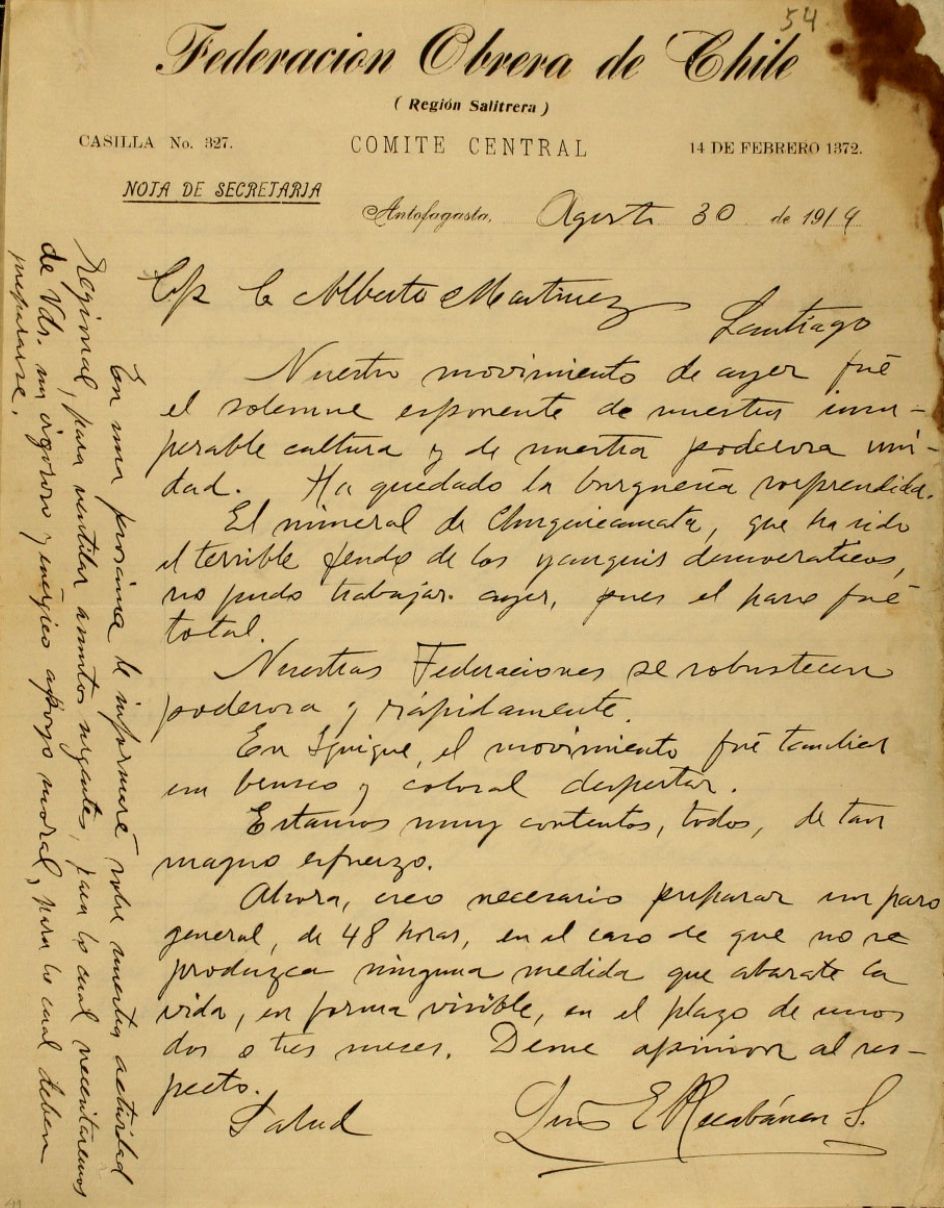 54
Federacion Obrera de Chile
( Región Salitrera )
CASILLA No. 327. COMITE CENTRAL 14 DE FEBRERO 1372.
NOTA DE SECRETARIA
Antofagasta, Agosto 30 de 1919
C. Alberto Martinez
Santiago
Nuestro movimiento de ayer fué
el solemne esponente de nuestra insu-
perable cultura y de nuestra poderosa uni-
dad. Ha quedado la burguesía sorprendida.
El mineral de Chuquicamata, que ha sido
el terrible feudo de los yanquis democraticos,
no pudo trabajar ayer, pues el paro fué
total.
Nuestras Federaciones se robustecen
poderosa y rápidamente.
En Iquique, el movimiento fué tambien
un inmenso y colosal despertar.
Estamos muy contentos, todos, de tan
magno esfuerzo.
Ahora, creo necesario preparar un paro
general, de 48 horas, en el caso de que no se
produzca ninguna medida que abarate la
vida, en forma visible, en el plazo de unos
dos o tres meses. Deme opinion al res-
pecto.
Salud Luis E Recabárren S.
En una procsima le informaré sobre nuestra actividad
Regional, para ventilar asuntos urgentes, para lo cual necesitaremos
de Vds. un vigoroso y enérgico apoyo moral, para lo cual deben
prepararse.